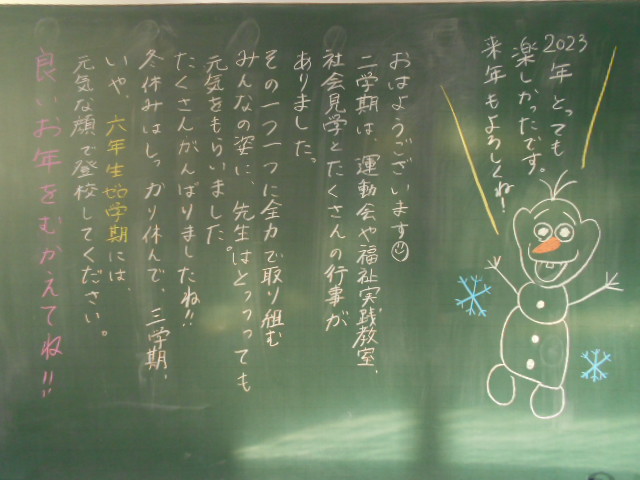 2023年とっても
楽しかったです。
来年もよろしくね!
おはようございます
二学期は、運動会や福祉実践教室、
社会見学とたくさんの行事が
ありました。
その一つ一つに全力で取り組む
みんなの姿に、先生はとっつっても
元気をもらいました。
たくさんがんばりましたね!!
冬休みはしっかり休んで、三学期、
いや、六年生 学期には、
元気な顔で登校してください。
良いお年をむかえてね!!